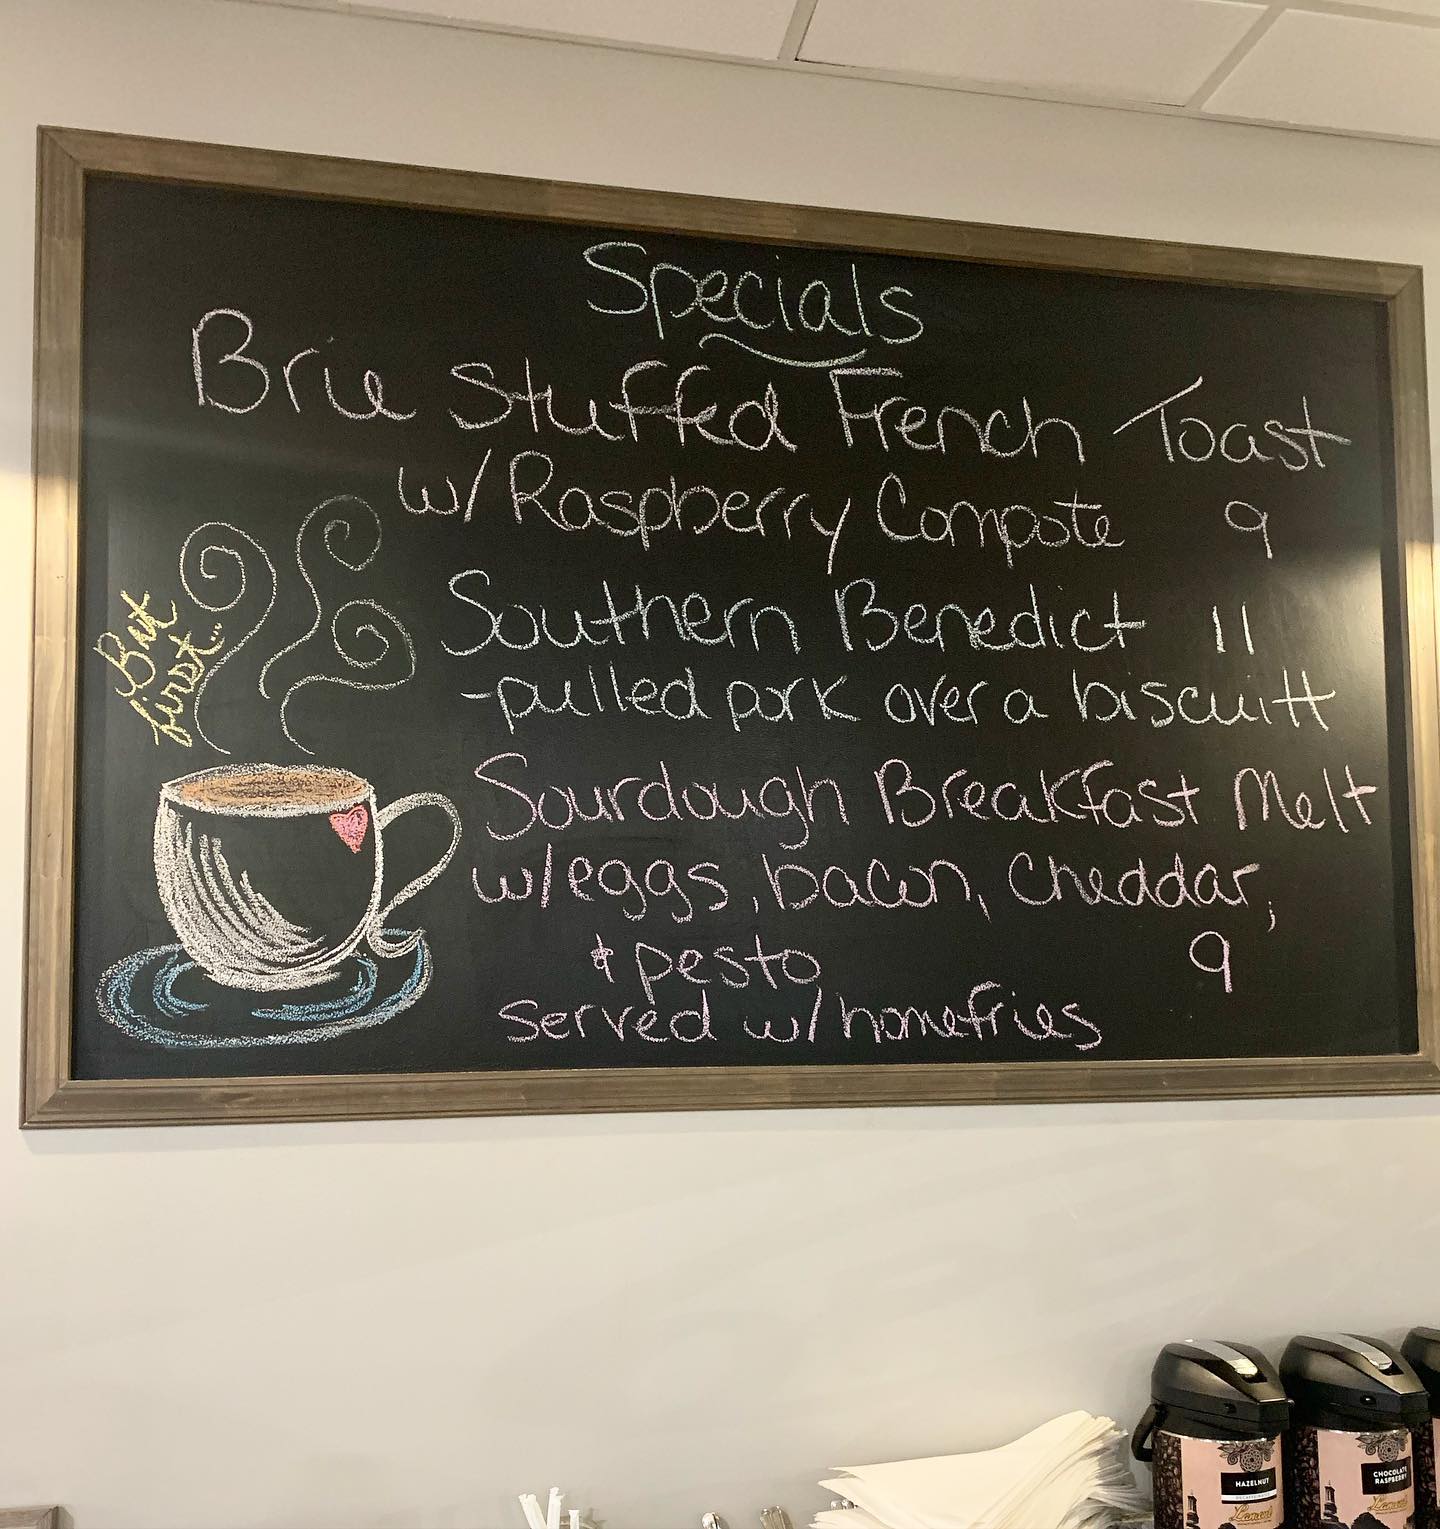 Specials
Brie Stuffed French Toast
w/ Raspberry Compote 9
Southern Benedict 11
-pulled pork over a biscuitt
Sourdough Breakfast Melt
w/eggs, bacon, cheddar,
& pesto 9
served w/ homefries
But
first...
HAZELNUT
CHOCOLATE
RASPBERRY